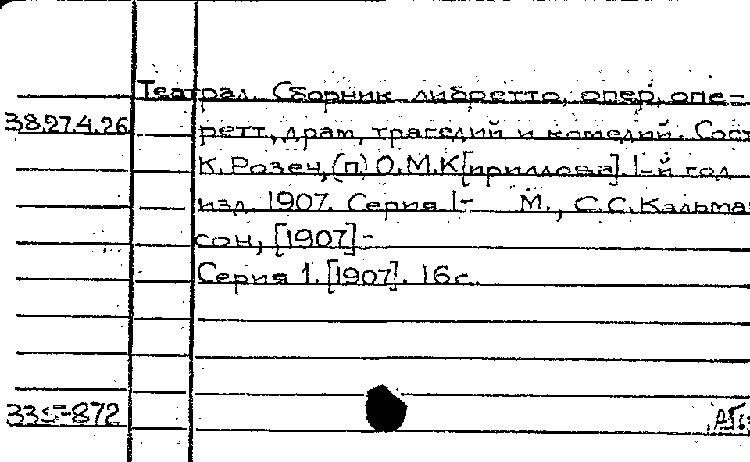 Театрал. Сборник либретто, опер, опе-
38.27.4.26
ретт, драм, трагедий и комедий. Сост
К. Розен, (п) О.М.К[ириллова]. 1-й год
изд. 1907. Серия 1- М., С.С. Кальма
сон, [1907]-
Серия 1. [1907]. 16 с.